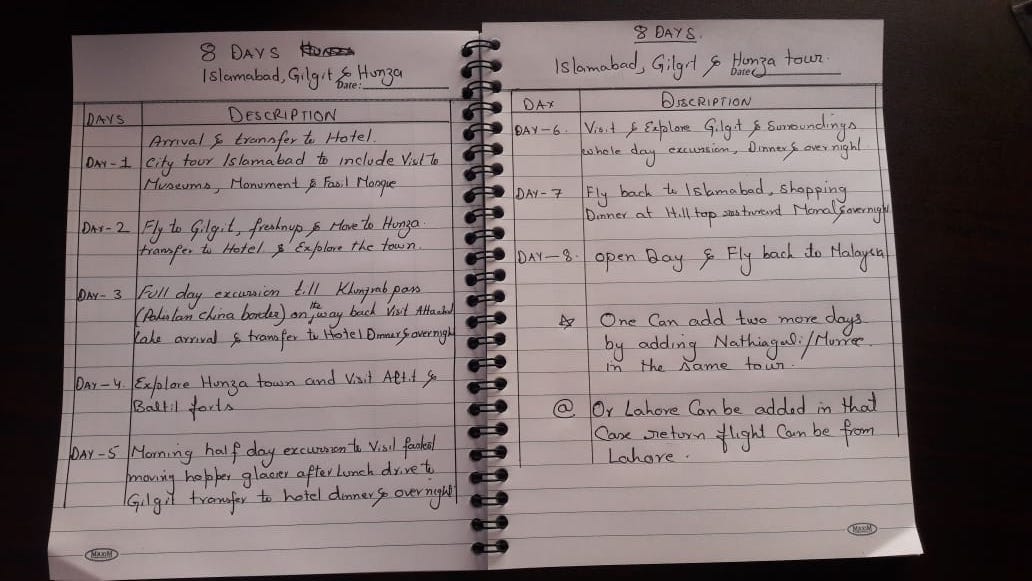 8 DAYS
Islamabad, Gilgit & Hunza
Date:
DAYS DESCRIPTION
Arrival & transfer to Hotel.
DAY-1 City tour Islamabad to include Visit to
Museums, Monument & Fasil Mosque
DAY-2 Fly to Gilgit, freshnup & Move to Hunza.
transfer to Hotel & Explore the town.
DAY-3 Full day excursion till Khunjrab pass
(Pakistan China border) on the way back Visit Attabad
Lake arrival & transfer to Hotel Dinner & overnight
DAY-4. Explore Hunza town and Visit Altit &
Baltil forts
DAY-5 Morning half day excursion to Visit fastest
moving hopper glacier after Lunch drive to
Gilgit transfer to hotel dinner & overnight
MAXIM
8 DAYS.
Islamabad, Gilgit & Hunza tour.
Date:
DAY DISCRIPTION
DAY-6. Visit & Explore Gilgit & Surroundings
whole day excursion, Dinner & over night
DAY-7 Fly back to Islamabad, shopping
Dinner at Hill top Monal & overnight
DAY-8. open Day & Fly back to Malaysia
☆ One Can add two more days
by adding Nathiagali/Murree.
in the same tour.
@ Or Lahore Can be added in that
Case return flight Can be from
Lahore.
MAXIM